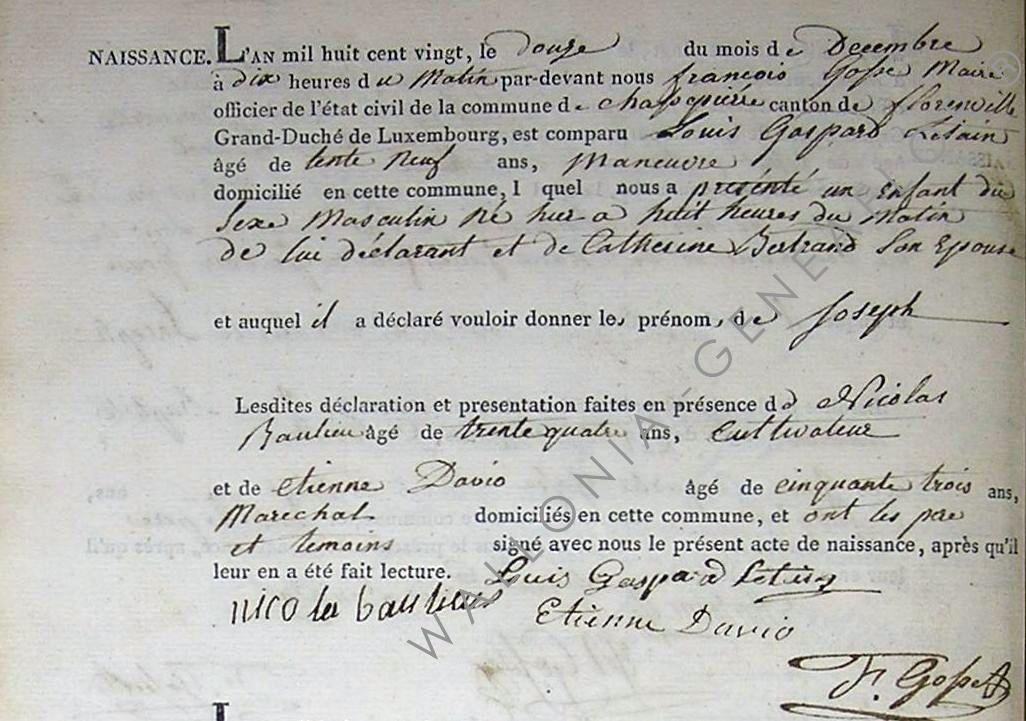 NAISSANCE. L'AN mil huit cent vingt, le douze du mois de Decembre
à dix heures du Matin par-devant nous françois Gosse Maire
officier de l'état civil de la commune de chassepierre canton de florenville
Grand-Duché de Luxembourg, est comparu Louis Gaspard
âgé de tente neuf ans, Maneuvre
domicilié en cette commune, l quel nous a présenté un enfant du
sexe Masculin né hier a huit heures du Matin
de lui déclarant et de Catherine Bertrand son Epouse
et auquel il a déclaré vouloir donner les prénom, de Joseph
Lesdites déclaration et presentation faites en présence de Nicolas
Baulieu âgé de trente quatre ans, Cultivateur
et de etienne David âgé de cinquante trois ans,
Marechal domiciliés en cette commune, et ont les pere
et temoins signé avec nous le présent acte de naissance, après qu'il
leur en a été fait lecture. Louis Gaspard
Etienne David
F. Gosse
L
WALLONIA-GENE